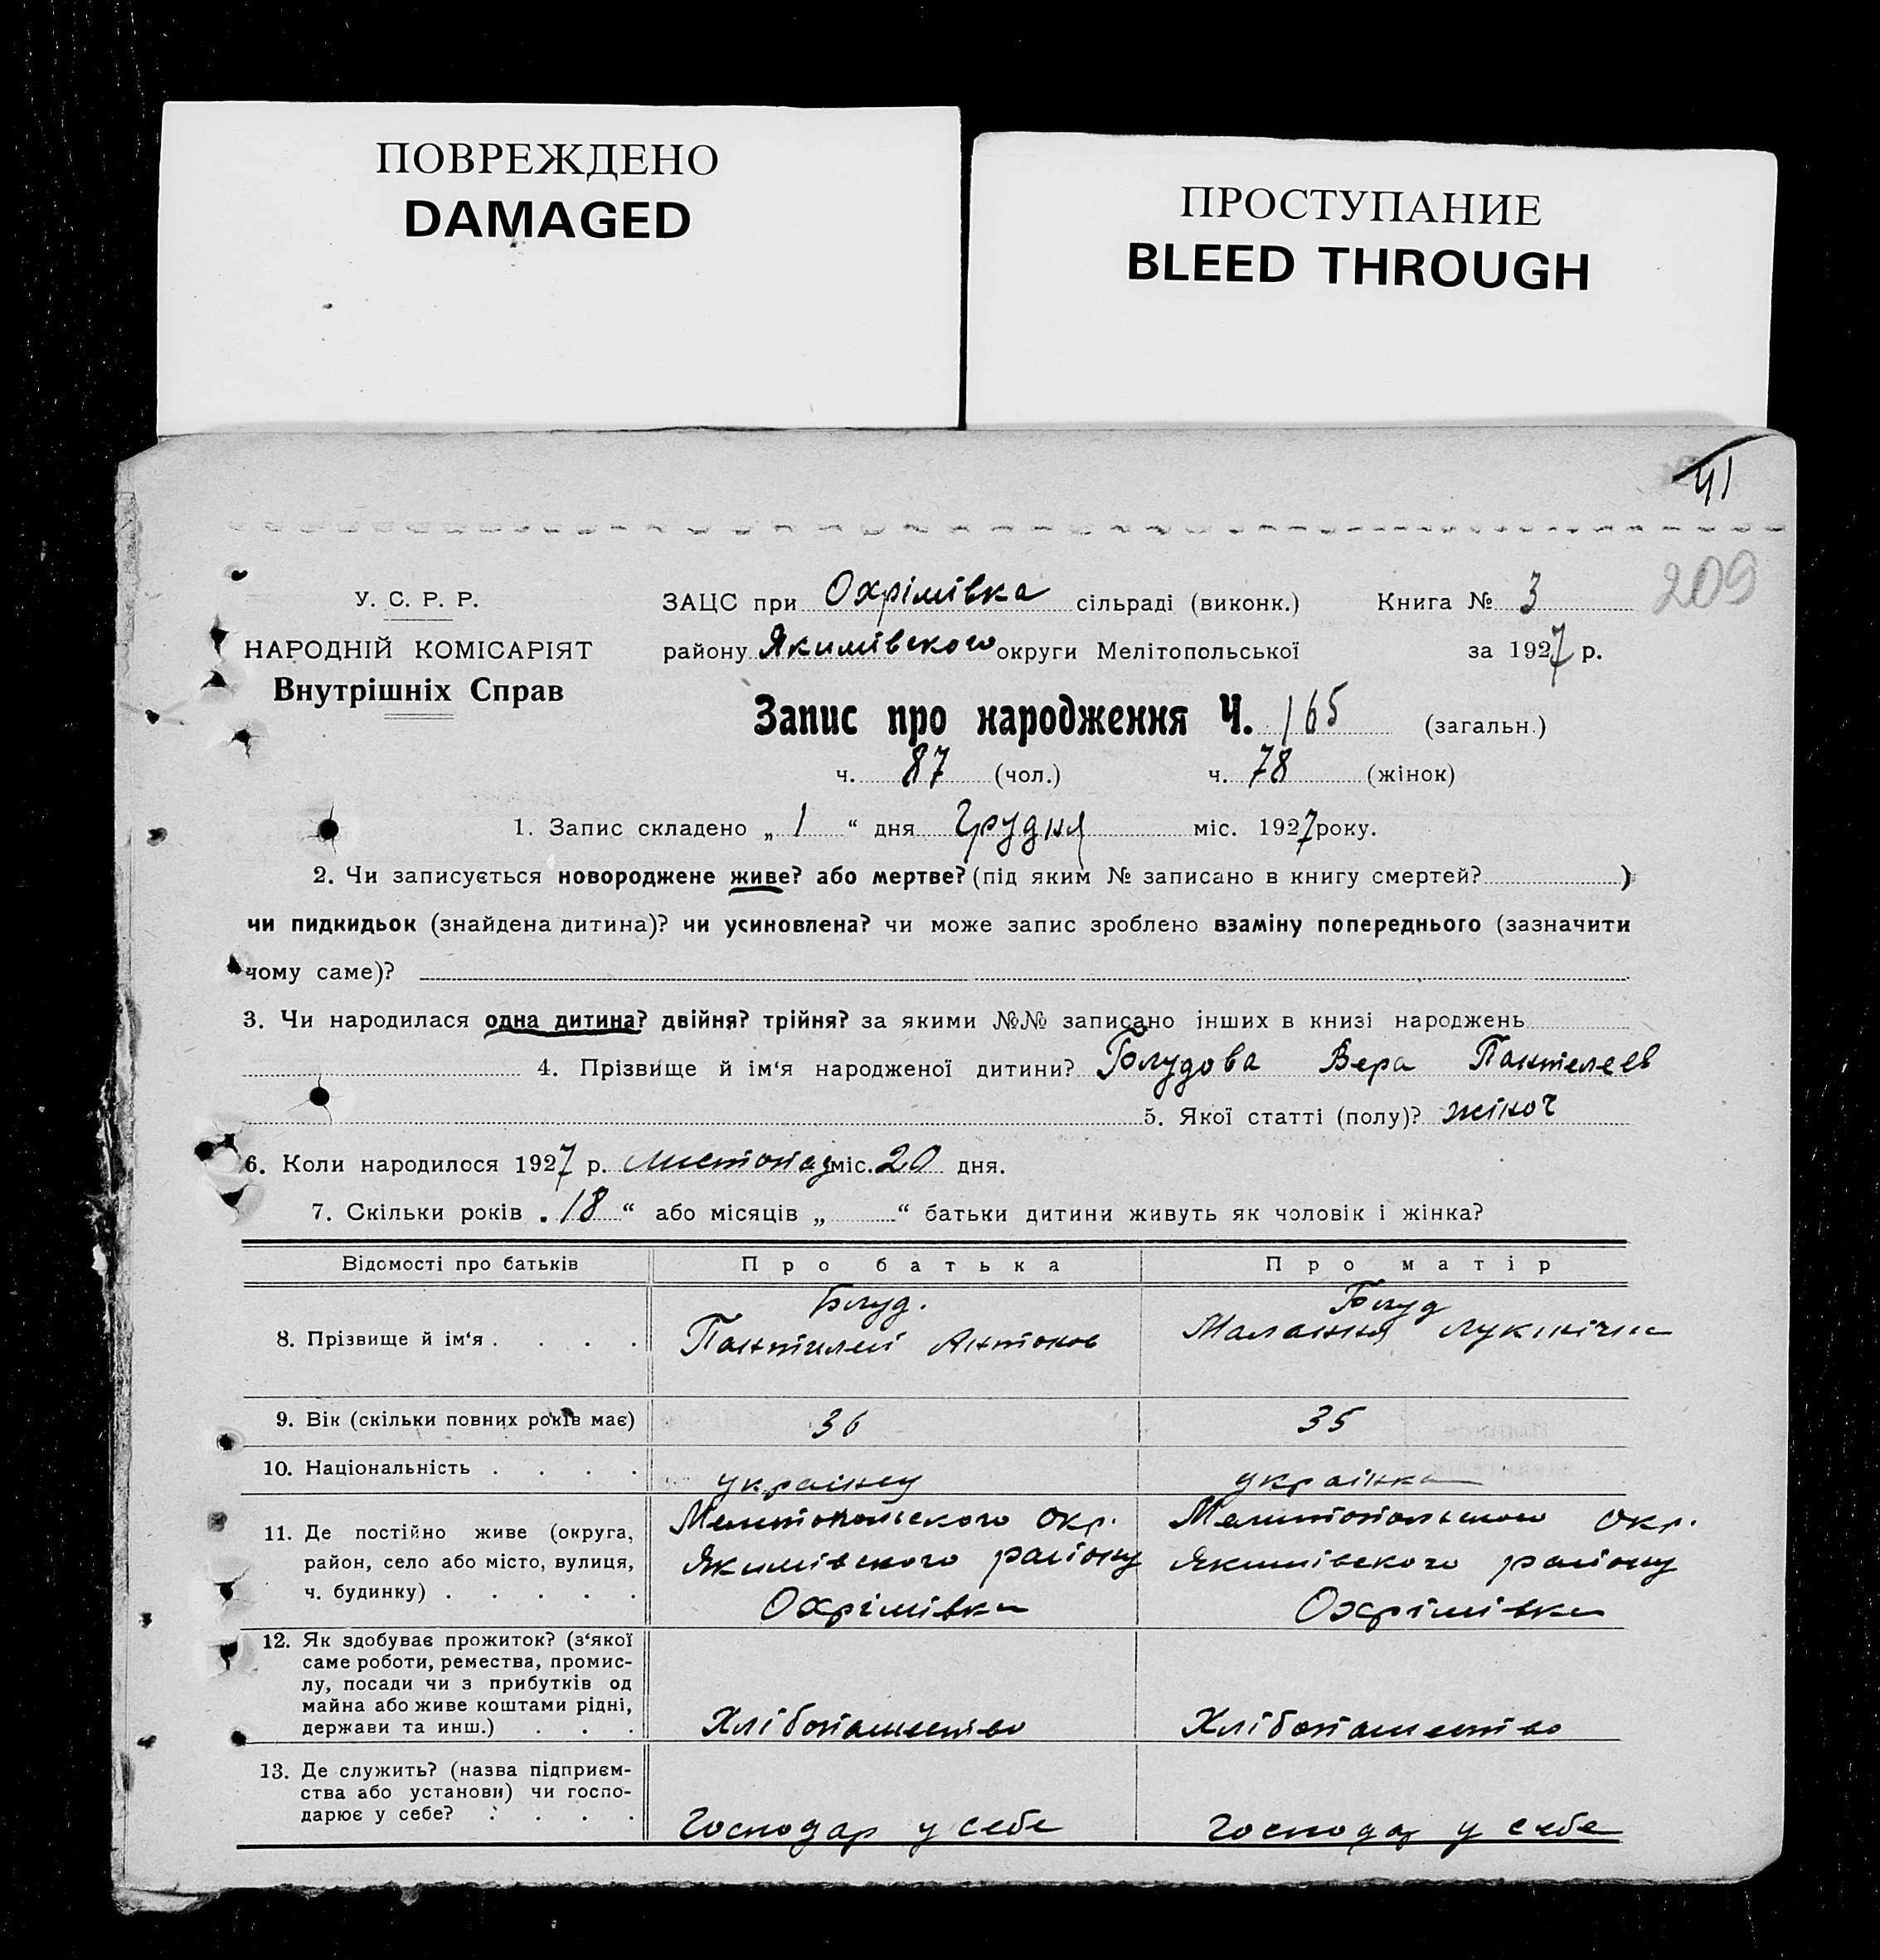 ПОВРЕЖДЕНО
DAMAGED
ПРОСТУПАНИЕ
BLEED THROUGH
41
209
У. С. Р. Р.
НАРОДНІЙ КОМІСАРІЯТ
Внутрішніх Справ
ЗАЦС при Охрімівка сільраді (виконк.) Книга № 3
району Якимівского округи Мелітопольської за 1927 р.
Запис про народження Ч. 165 (загальн.)
ч. 87 (чол.) ч. 78 (жінок)
1. Запис складено „ 1 “ дня Грудня міс. 1927 року.
2. Чи записується новороджене живе? або мертве? (під яким № записано в книгу смертей? )
чи пидкидьок (знайдена дитина)? чи усиновлена? чи може запис зроблено взаміну попереднього (зазначити
чому саме)?
3. Чи народилася одна дитина? двійня? трійня? за якими №№ записано інших в книзі народжень
4. Прізвище й ім‘я народженої дитини? Блудова Вера Пантелеев
5. Якої статті (полу)? жіноч
6. Коли народилося 1927 р. листопад міс. 20 дня.
7. Скільки років „ 18 “ або місяців „ “ батьки дитини живуть як чоловік і жінка?
Відомості про батьків Про батька Про матір
8. Прізвище й ім‘я . . . . Блуд. Блуд
Пантилей Антонов Маланья Лукинічна
9. Вік (скільки повних років має) 36 35
10. Національність . . . . українец українка
11. Де постійно живе (округа, Мелитопольского Окр. Мелитопольского Окр.
район, село або місто, вулиця, Якимівского району Якимівского району
ч. будинку) . . . . . Охрімівка Охрімівка
12. Як здобуває прожиток? (з‘якої
саме роботи, ремества, промис-
лу, посади чи з прибутків од
майна або живе коштами рідні,
держави та инш.) . . . Хлібопашество Хлібопашество
13. Де служить? (назва підприєм-
ства або установи) чи госпо-
дарює у себе? . . . . Господар у себе Господар у себе